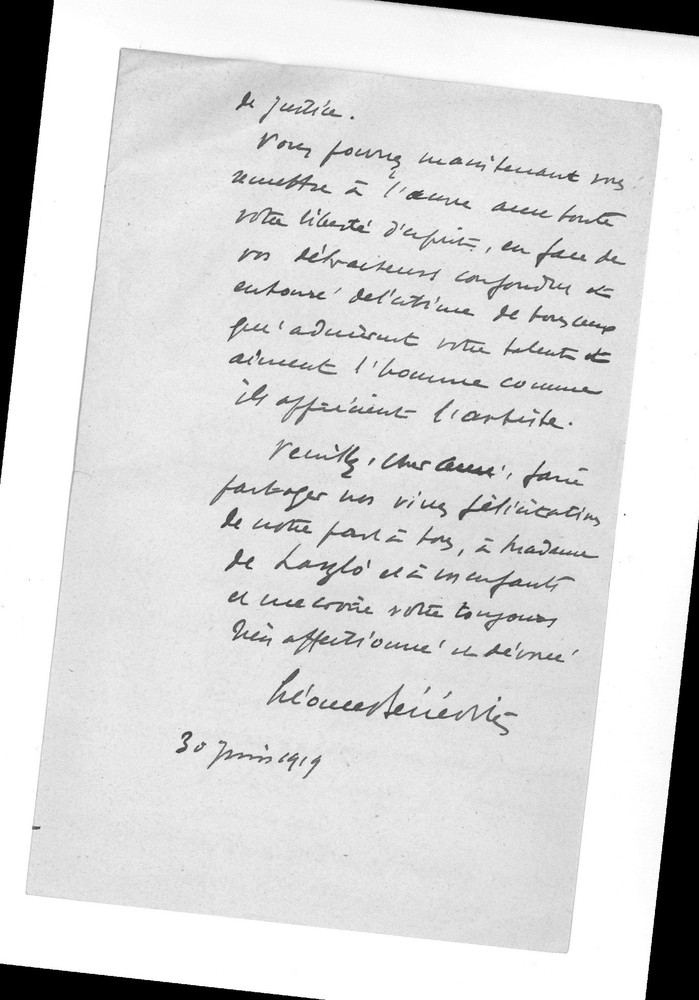 de justice.
Vous pouvez maintenant vous
remettre à l'œuvre avec toute
votre liberté d'esprit, en face de
vos détracteurs confondus et
entouré de l'estime de tous ceux
qui admirent votre talent et
aiment l'homme comme
ils apprécient l'artiste.
Veuillez, cher ami, faire
partager nos vives félicitations
de notre part à tous, à Madame
de László et à vos enfants
et me croire votre toujours
bien affectionné et dévoué
Léonce Bénédite
30 juin 1919